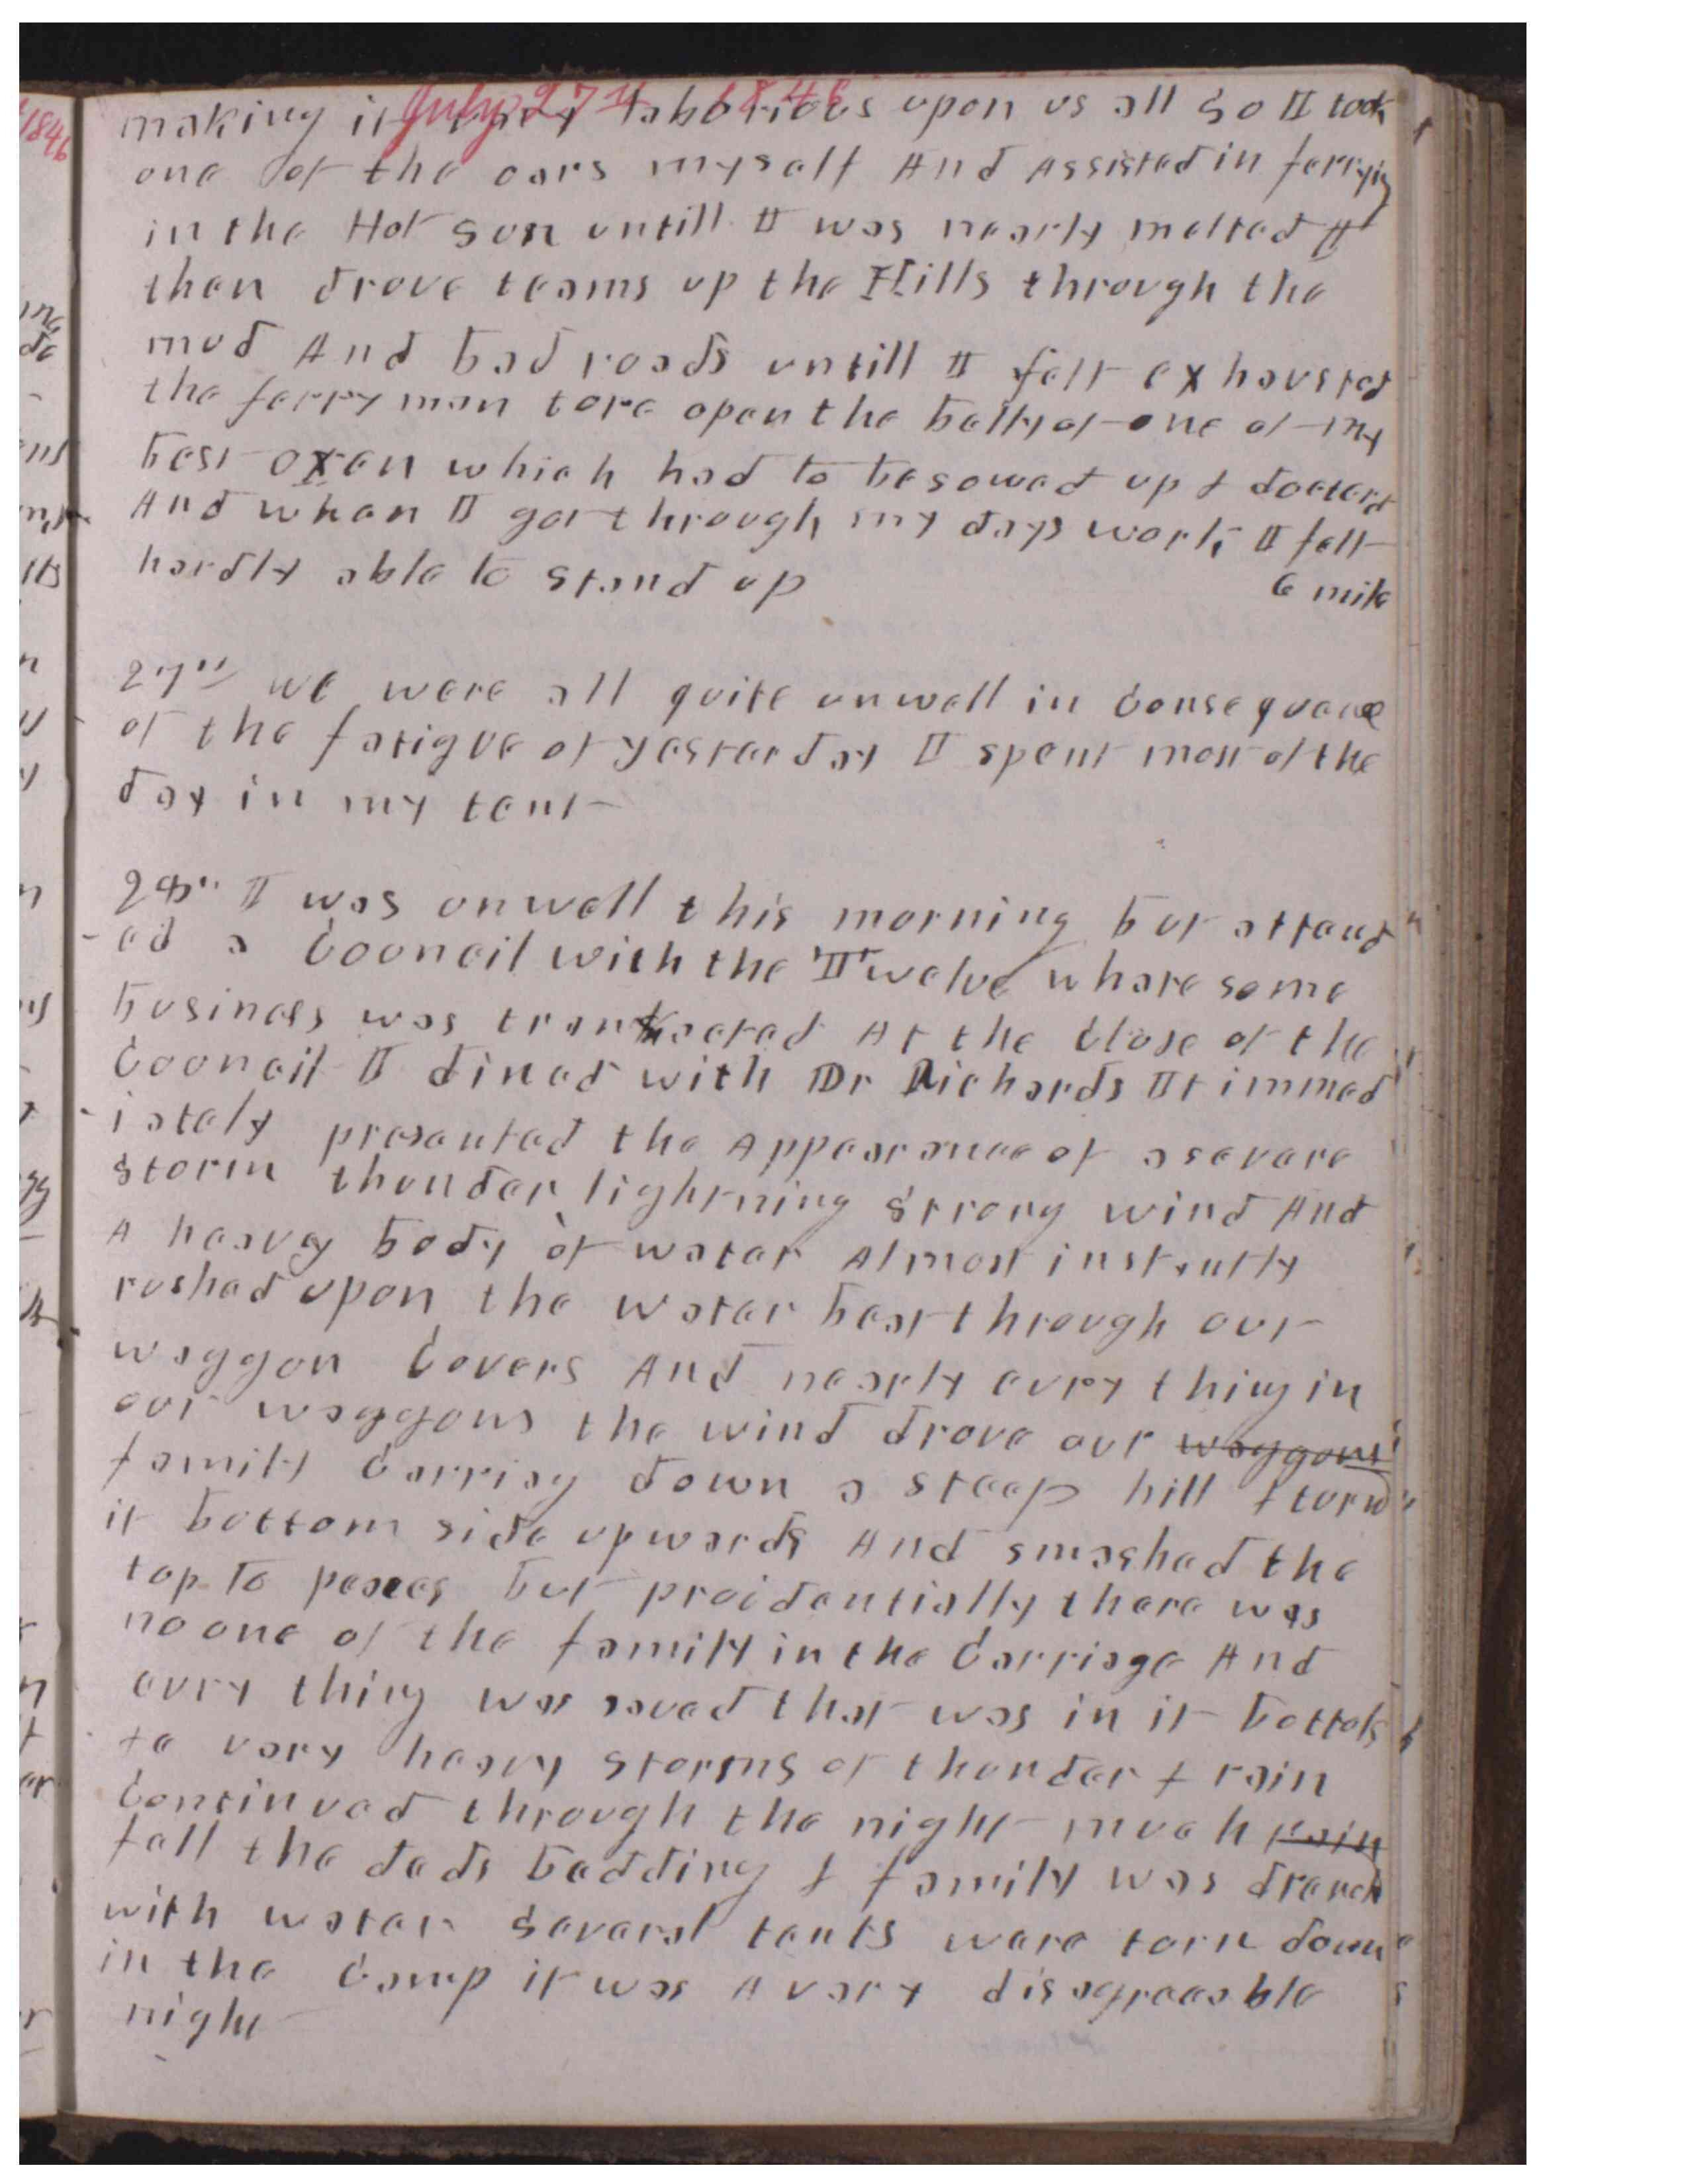 July 27th 1846
making it very laborious upon us all So I took
one of the oars myself And Assisted in ferrying
in the Hot sun untill I was nearly melted I
then drove teams up the Hills through the
mud And bad roads untill I felt exhausted
the ferryman tore open the belly of one of my
best oxen which had to be sowed up & doctered
And when I got through my days work I felt
hardly able to stand up 6 mile
27th we were all quite unwell in Consequence
of the fatigue of yesterday I spent most of the
day in my tent
28th I was unwell this morning but attend
ed a Council with the Twelve whare some
business was transacted At the Close of the
Council I dined with Dr Richards It immed
iately presented the Appearance of a severe
storm thunder lightning strong wind And
A heavy body of water Almost instantly
rushed upon the water beat through our
waggon Covers And nearly evry thing in
our waggons the wind drove our waggons
family Carriag down a steep hill & turnd
it bottom side upwards And smashed the
top to peaces but proidentially there was
no one of the family in the Carriage And
evry thing was saved that was in it bottels
&c very heavy storms of thunder & rain
Continued through the night much rain
fell the deds bedding & family was drench
with water several tents were torn down
in the Camp it was A very disagreeable
night